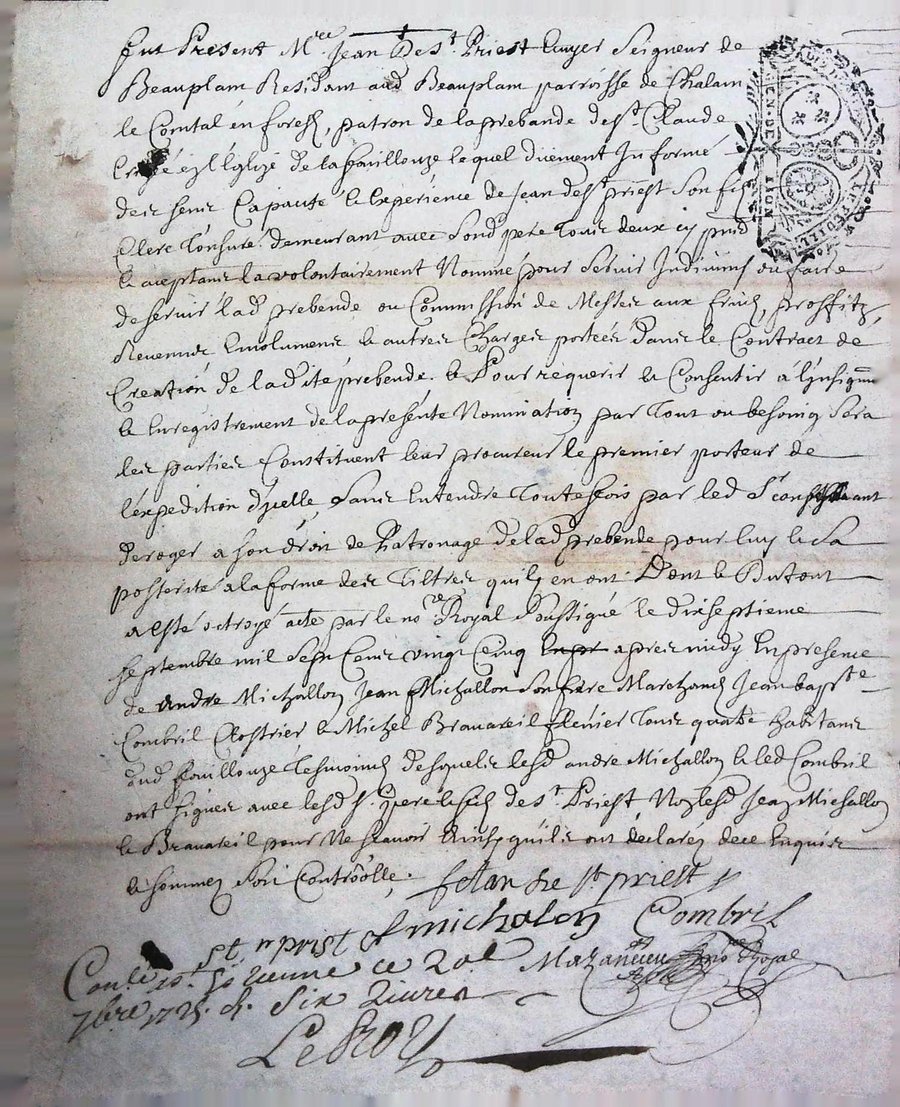 Fut Present M.re Jean De St Priest Ecuyer Seigneur de
Beauplam Residant aud Beauplam parroisse de Chalain
le Comtal en forest, patron de la prebande de St Claude
en l'Eglize de la faillouze lequel duement Informé
des sens Capacité & Experience de Jean de St priest son fils
Clerc Tonsuré demeurant avec Sond pere Tous deux cy
& aceptans la volontairement Nommé pour Servir ou faire
deservir lad prebende ou Commission de Messes aux fruits, proffitz,
Revennus Emolumens & autres Charges portées dans le Contract de
Creation de ladite prebende. & Pour requerir & Consentir a l'ynsiguon
& Enregistrement de la presente Nomination par Tout ou besoing Sera
les parties Constituent leur procureur le premier porteur de
l'expedition d'ycelle, Sans Entendre Toutefois par led Sr
deroger a son droit de Patronage de lad prebende pour luy & Sa
posterité a la forme des Tiltres quils en ont. Dont & Du tout
a esté octroyé acte par le nore Royal Soussigné le dixseptieme
septembre mil Sept Cens vingt Cinq apres midy En presence
de Andre Michallon Jean Michallon Son frere Marchands Jean bapste
Combril & Michel Bravareil Tous quatre habitans
aud faillouze Tesmoins desquels lesd andre Michallon & led Combril
ont signés avec lesd Srs pere & fils de St Priest Non lesd Jean Michallon
& Bravareil pour Ne Scavoir Ainsy quils ont declarez de ce Enquis
& Sommez Soit Controolle.
Jean De St priest
St prist A michalon Combril
Mazancieu nore Royal
ce 20e
7bre 1725. R. Six Livres
LeRoy
GEN. DE LION